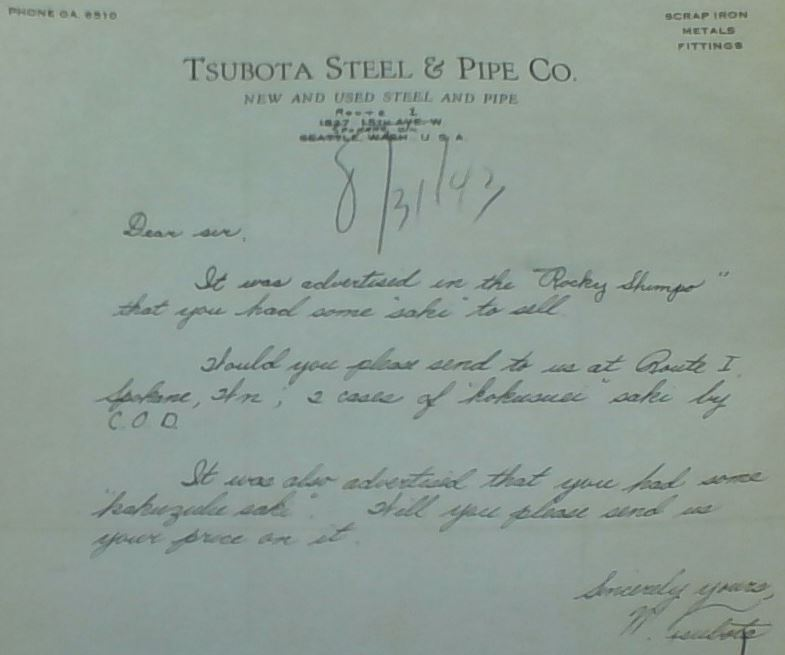 PHONE GA. 8510
SCRAP IRON
METALS
FITTINGS
TSUBOTA STEEL & PIPE CO.
NEW AND USED STEEL AND PIPE
Route 1
1827 15TH AVE. W
Spokane, Wn
SEATTLE, WASH. U.S.A.
8/31/43
Dear sir,
It was advertised in the "Rocky Shimpo"
that you had some "saki" to sell.
Would you please send to us at Route 1,
Spokane, Wn, 2 cases of "kokusui" saki by
C.O.D.
It was also advertised that you had some
"kakuzulu saki". Will you please send us
your price on it.
Sincerely yours,
W. Tsubota